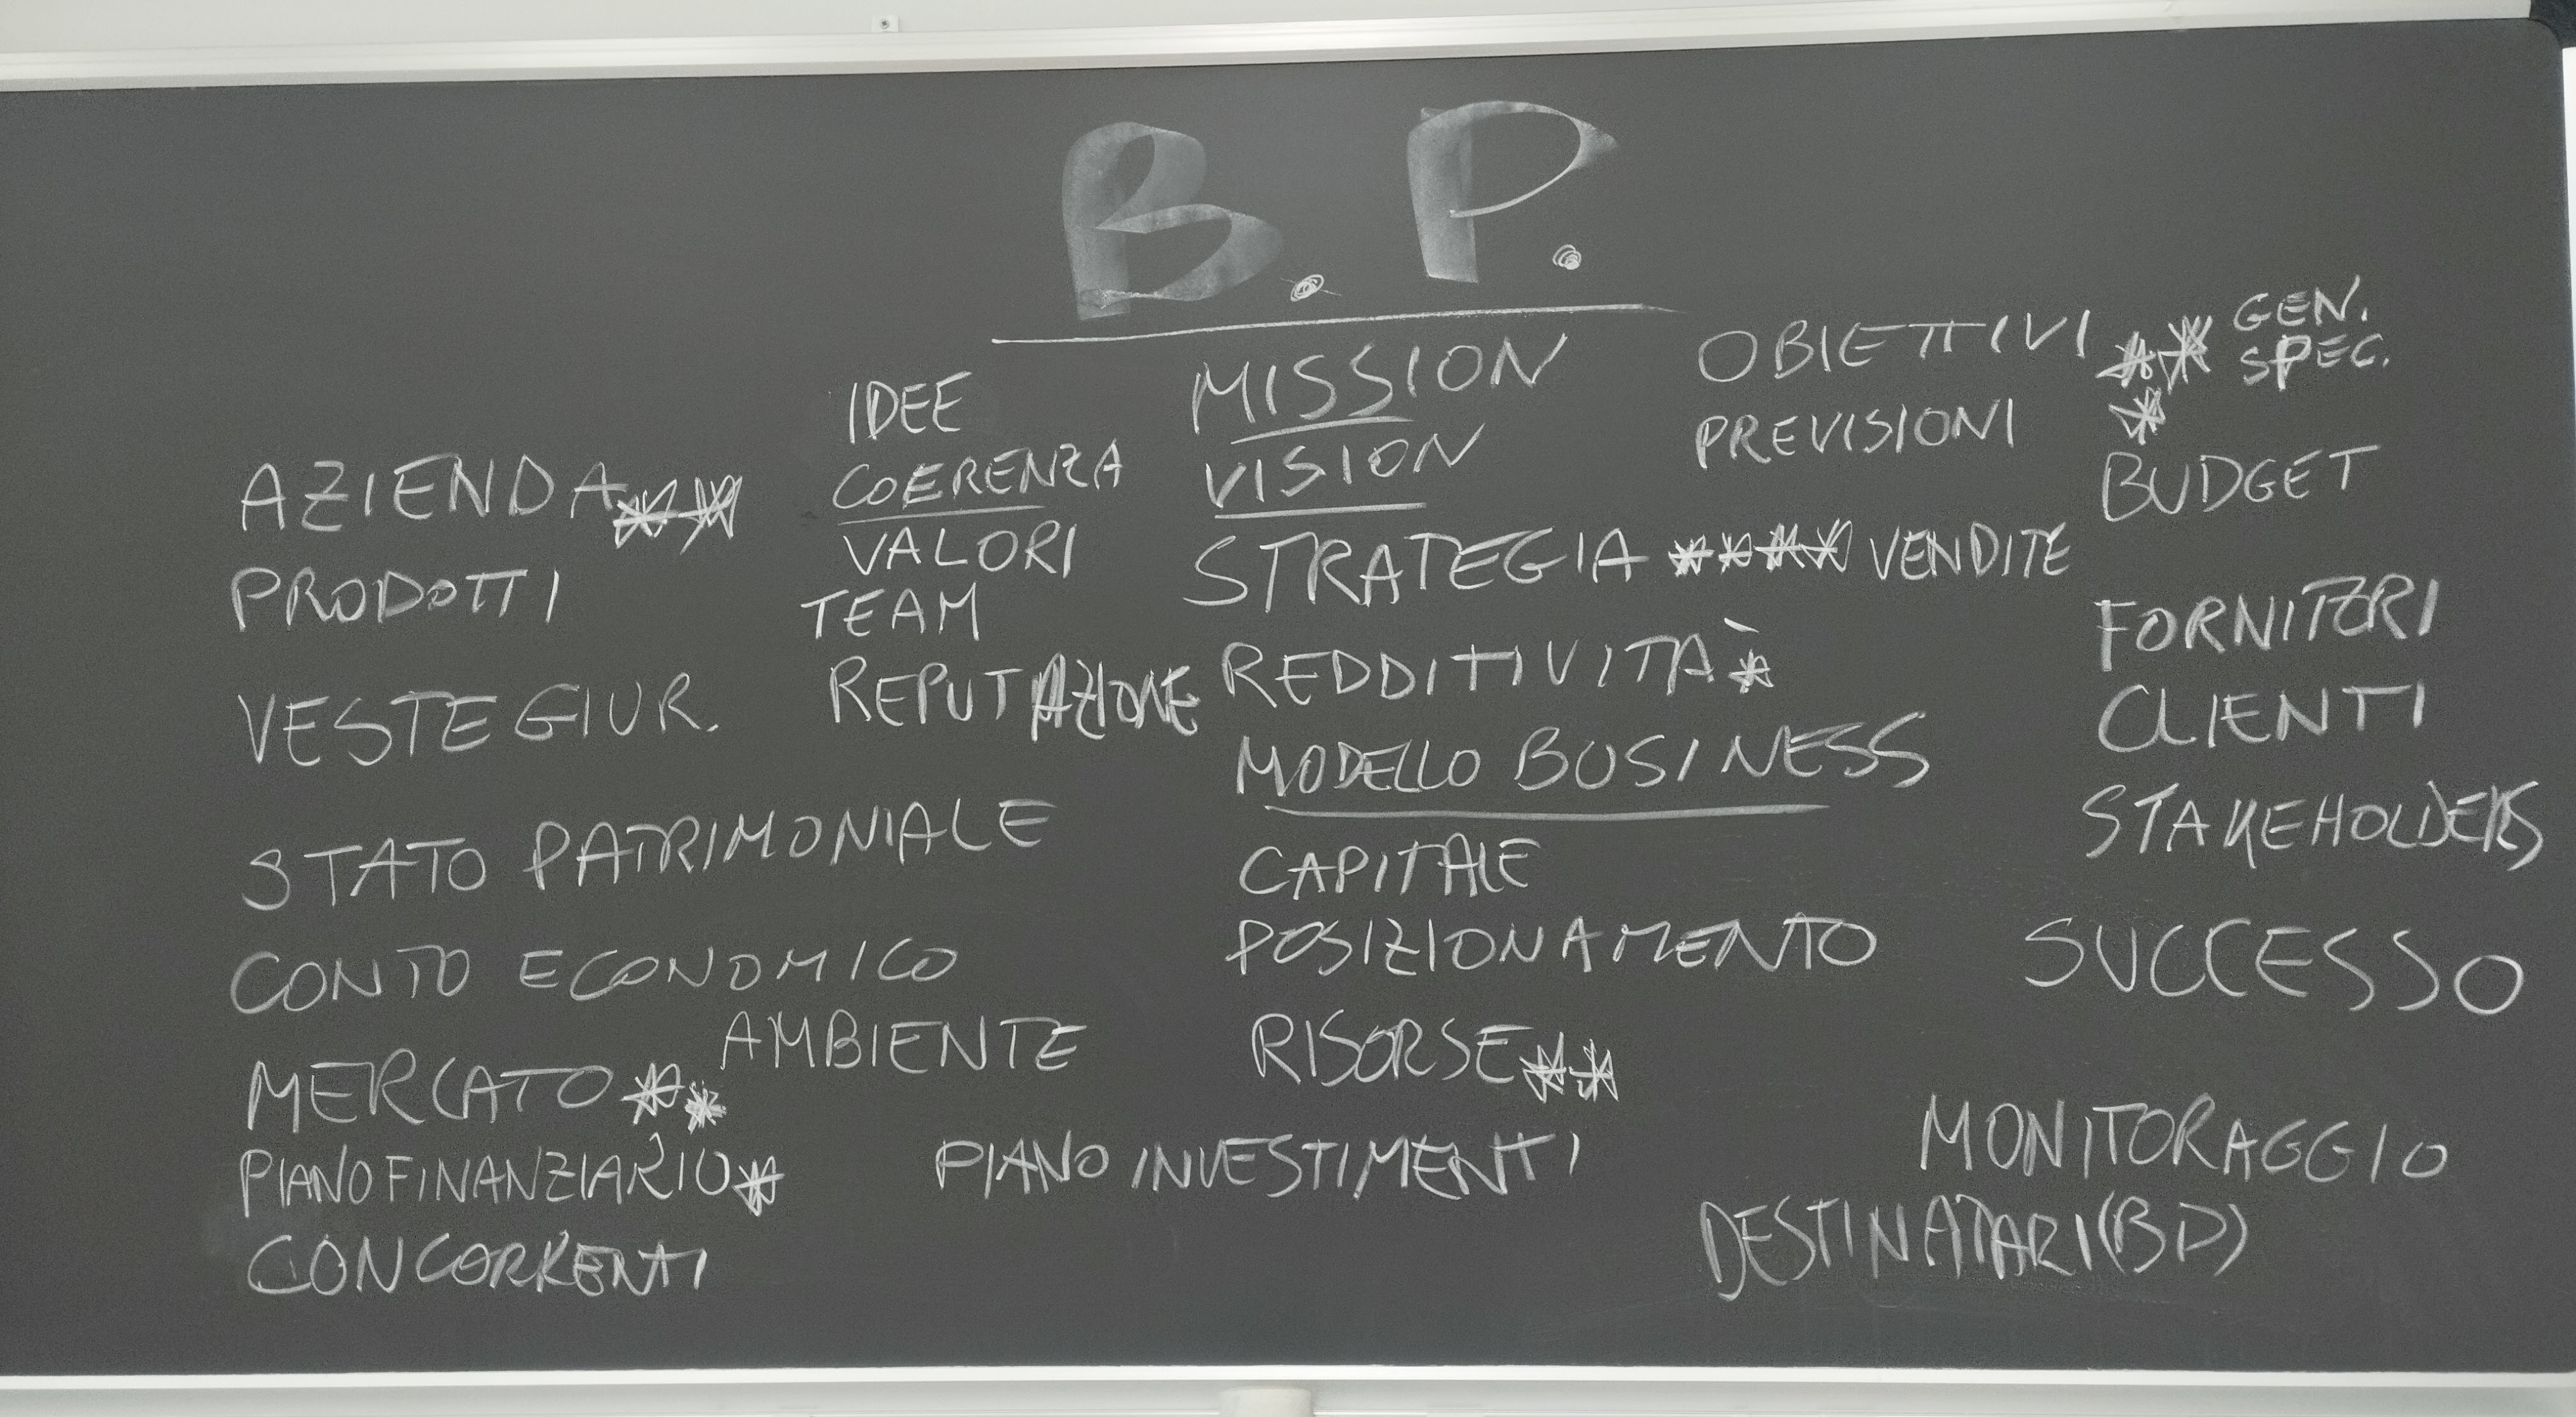 B. P.
IDEE
COERENZA
VALORI
TEAM
REPUTAZIONE
MISSION
VISION
STRATEGIA **** VENDITE
REDDITIVITÀ *
MODELLO BUSINESS
CAPITALE
POSIZIONAMENTO
RISORSE **
PIANO INVESTIMENTI
OBIETTIVI ** GEN.
SPEC.
PREVISIONI *
BUDGET
FORNITORI
CLIENTI
STAKEHOLDERS
SUCCESSO
MONITORAGGIO
DESTINATARI (BP)
AZIENDA **
PRODOTTI
VESTE GIUR.
STATO PATRIMONIALE
CONTO ECONOMICO
AMBIENTE
MERCATO **
PIANO FINANZIARIO *
CONCORRENTI